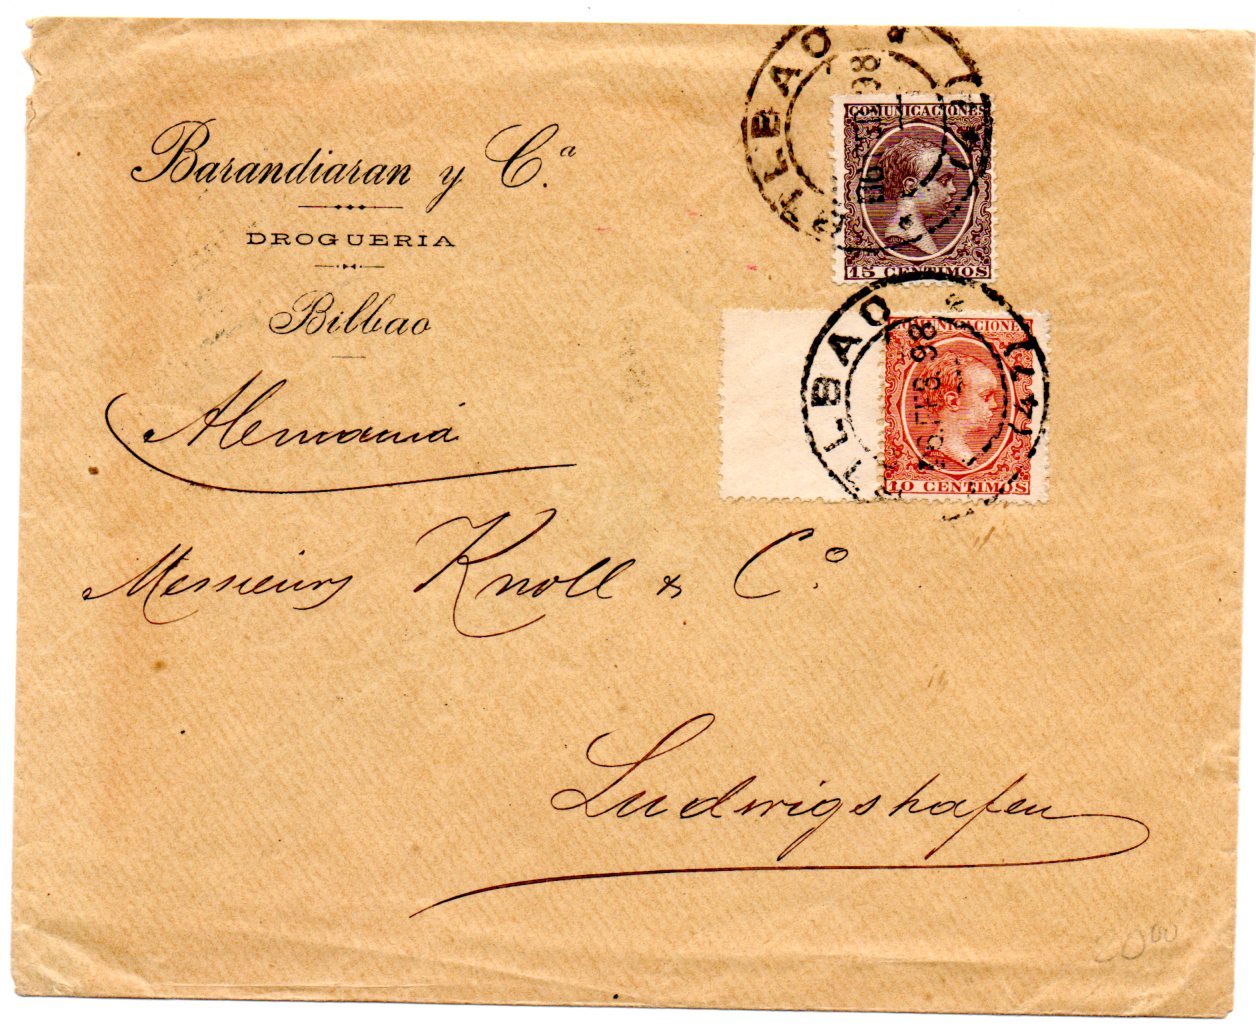 Barandiaran y C.ª
DROGUERIA
Bilbao
COMUNICACIONES
15 CENTIMOS
BILBAO
98
COMUNICACIONES
10 CENTIMOS
BILBAO
FEB 98
(47)
Alemania
Messieurs Knoll & C.º
Ludwigshafen